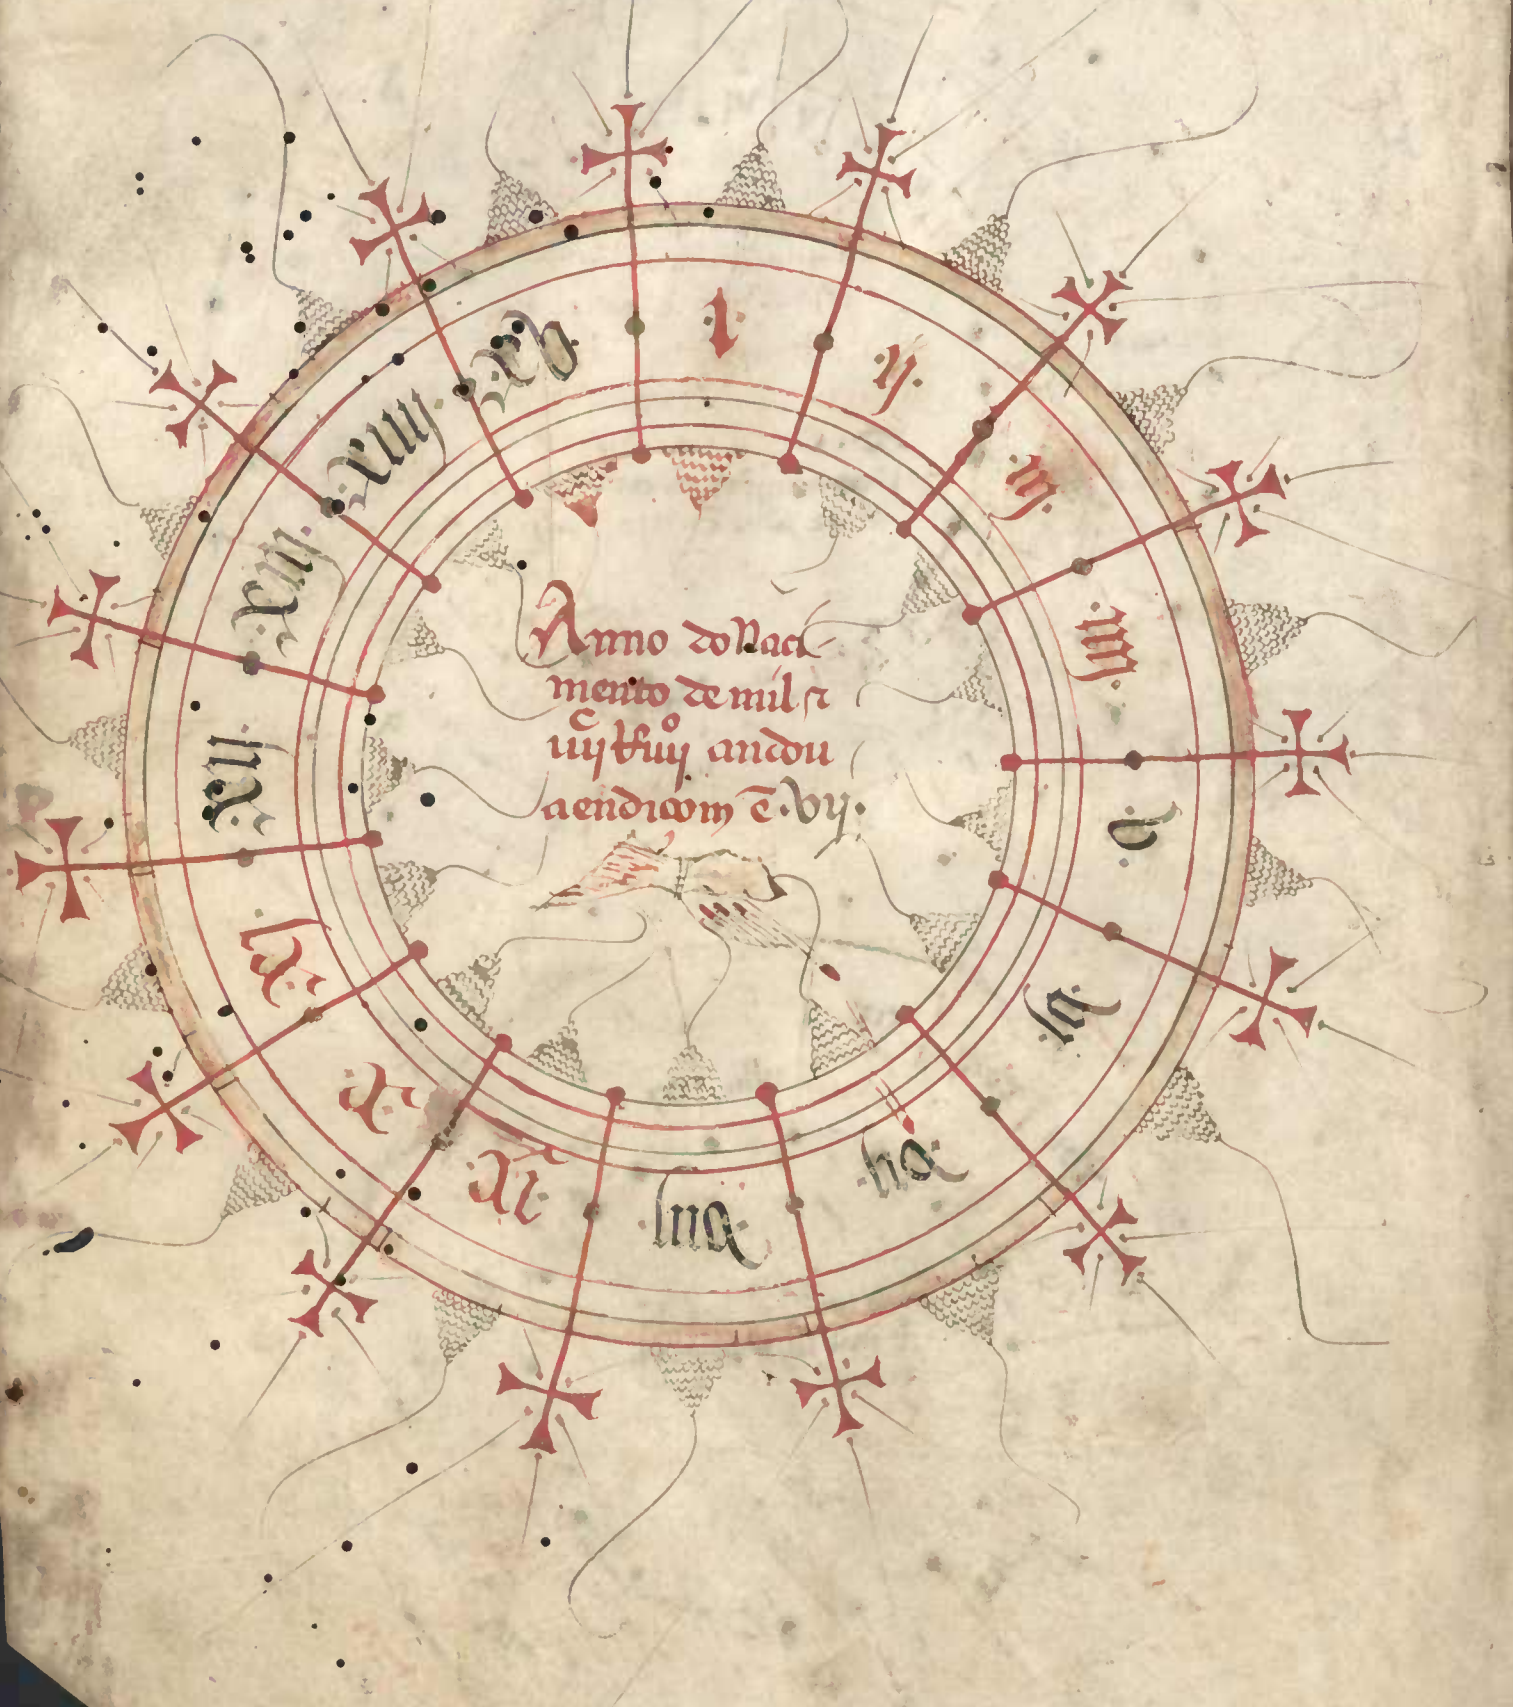 Anno do Naci
mento de mil &
iiijᶜ Riiijº andou
a endicom ē .vij.
.i.
.ij.
.iij.
.iiij.
.v.
.vj.
.vij.
.viij.
.ix.
.x.
.xj.
.xij.
.xiij.
.xiiij.
.xv.